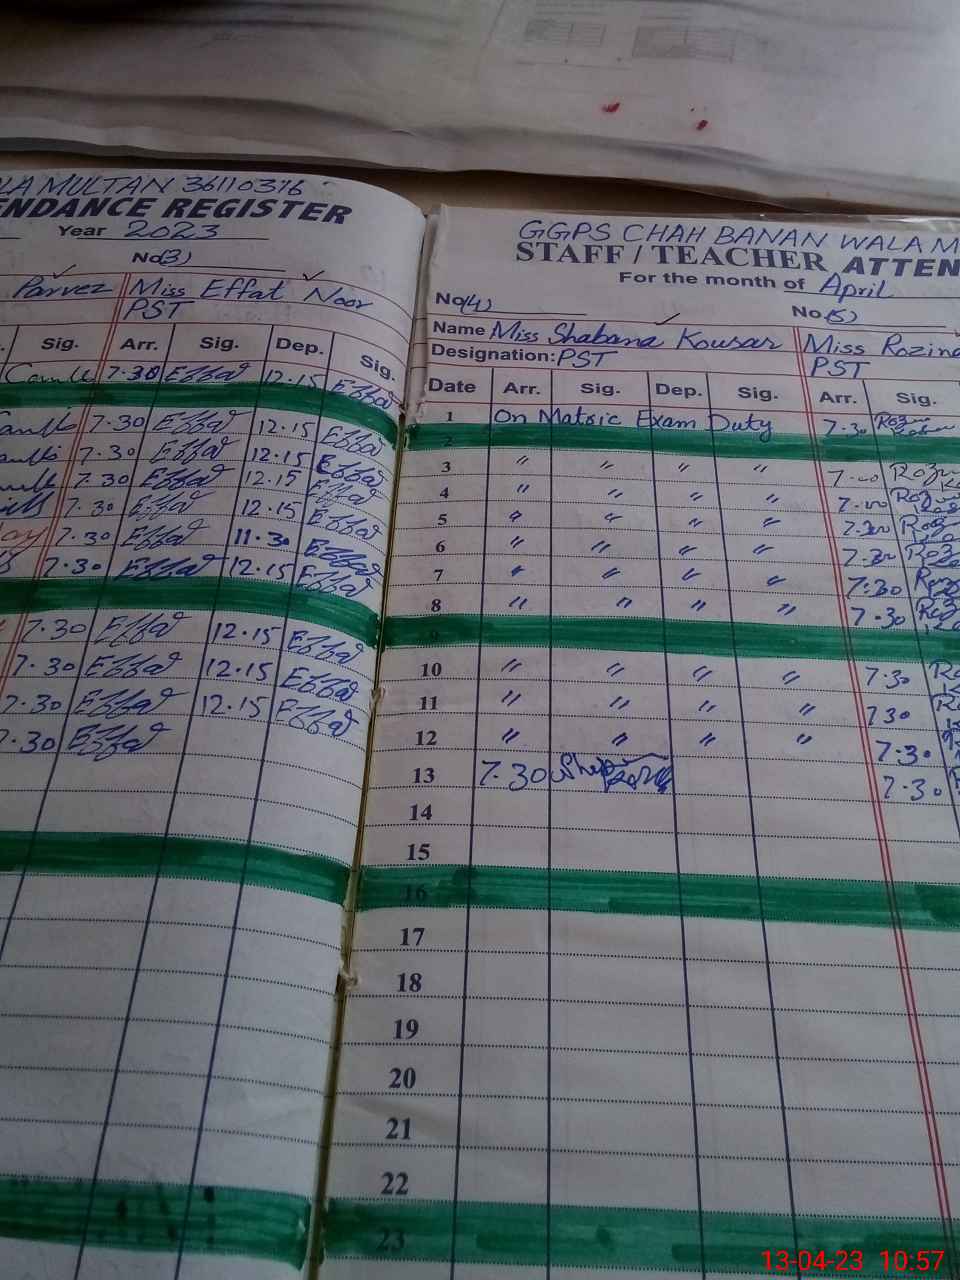 LA MULTAN 36110316
ENDANCE REGISTER
Year 2023
No(3)
Parvez Miss Effat Noor
PST
Sig. Arr. Sig. Dep. Sig.
7.30 Effat 12.15 Effat
7.30 Effat 12.15 Effat
7.30 Effat 12.15 Effat
7.30 Effat 12.15 Effat
7.30 Effat 12.15 Effat
7.30 Effat 11.30 Effat
7.30 Effat 12.15 Effat
7.30 Effat 12.15 Effat
7.30 Effat 12.15 Effat
7.30 Effat 12.15 Effat
7.30 Effat
GGPS CHAH BANAN WALA M
STAFF / TEACHER ATTEN
For the month of April
No(4) No.(5)
Name Miss Shabana Kousar Miss Rozina
Designation: PST PST
Date Arr. Sig. Dep. Sig. Arr. Sig.
1 On Matric Exam Duty 7.30
2
3 " " " "
4 " " " "
5 " " " "
6 " " " " 7.30
7 " " " " 7.30
8 " " " " 7.30
9
10 " " " " 7.30
11 " " " " 730
12 " " " " 7.30
13 7.30 7.30
14
15
16
17
18
19
20
21
22
23
13-04-23 10:57